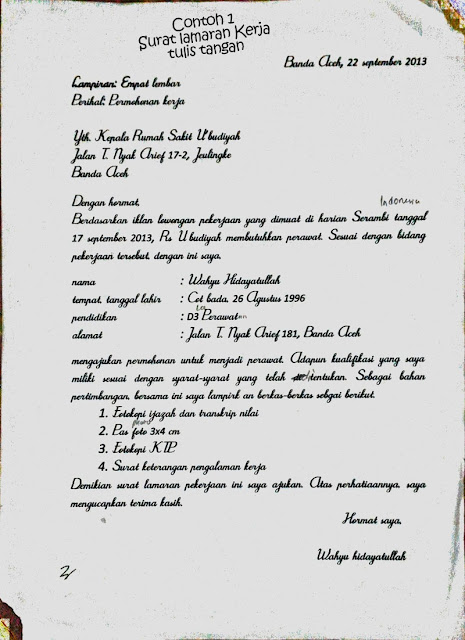 Contoh 1
Surat lamaran Kerja
tulis tangan
Banda Aceh, 22 september 2013
Lampiran: Empat lembar
Perihal: Permohonan kerja
Yth. Kepala Rumah Sakit U'budiyah
Jalan T. Nyak Arief 17-2, Jeulingke
Banda Aceh
Dengan hormat,
Indonesia
Berdasarkan iklan lowongan pekerjaan yang dimuat di harian Serambi tanggal
17 september 2013, Rs U budiyah membutuhkan perawat. Sesuai dengan bidang
pekerjaan tersebut, dengan ini saya,
nama : Wahyu Hidayatullah
tempat, tanggal lahir : Cot bada, 26 Agustus 1996
pendidikan : D3 Perawatan
alamat : Jalan T. Nyak Arief 181, Banda Aceh
mengajukan permohonan untuk menjadi perawat. Adapun kualifikasi yang saya
miliki sesuai dengan syarat-syarat yang telah ditentukan. Sebagai bahan
pertimbangan, bersama ini saya lampirk an berkas-berkas sebgai berikut.
1. Fotokopi ijazah dan transkrip nilai
2. Pas foto 3x4 cm
3. Fotokopi KTP
4. Surat keterangan pengalaman kerja
Demikian surat lamaran pekerjaan ini saya ajukan. Atas perhatiaannya, saya
mengucapkan terima kasih.
Hormat saya,
Wahyu hidayatullah